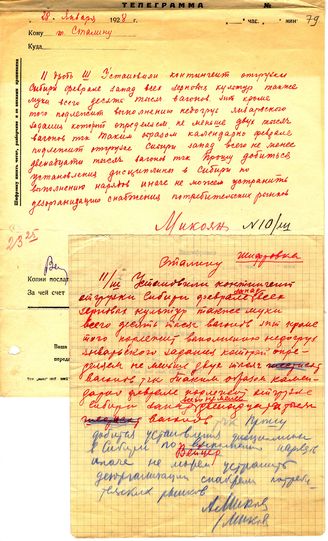 ТЕЛЕГРАММА №
28 Января 1928 г. час. мин 79
Кому т. Сталину
Куда
11 дробь Ш Установили контингент отгрузки
Сибири феврале запад всех зерновых культур также
муки всего десять тысяч вагонов зпт кроме
того подлежит выполнению недогруз январского
задания который определяем не меньше двух тысяч
вагонов тчк Таким образом календарно феврале
подлежит отгрузке Сибири запад всего не менее
двенадцати тысяч вагонов тчк Прошу добиться
установления дисциплины в Сибири по
выполнению нарядов иначе не можем устранить
дезорганизацию снабжения потребительских рынков
Микоян N10/ш
2325
Копии послат
За чей счет
Ваши
переда
Сталину шифровка
11/ш Установили контингент
отгрузки Сибири феврале запад всех
зерновых культур также муки
всего десять тысяч вагонов зпт кроме
того подлежит выполнению недогруз
январского задания который опре-
деляем не меньше двух тысяч
вагонов тчк таким образом кален-
дарно феврале подлежит отгрузке
Сибири запад всего не менее двенадцати тысяч
вагонов тчк Прошу
добиться установления дисциплины
в Сибири по выполнению нарядов
иначе не можем устранить
дезорганизацию снабжения потреби-
тельских рынков
А. Микоян
/Микоян